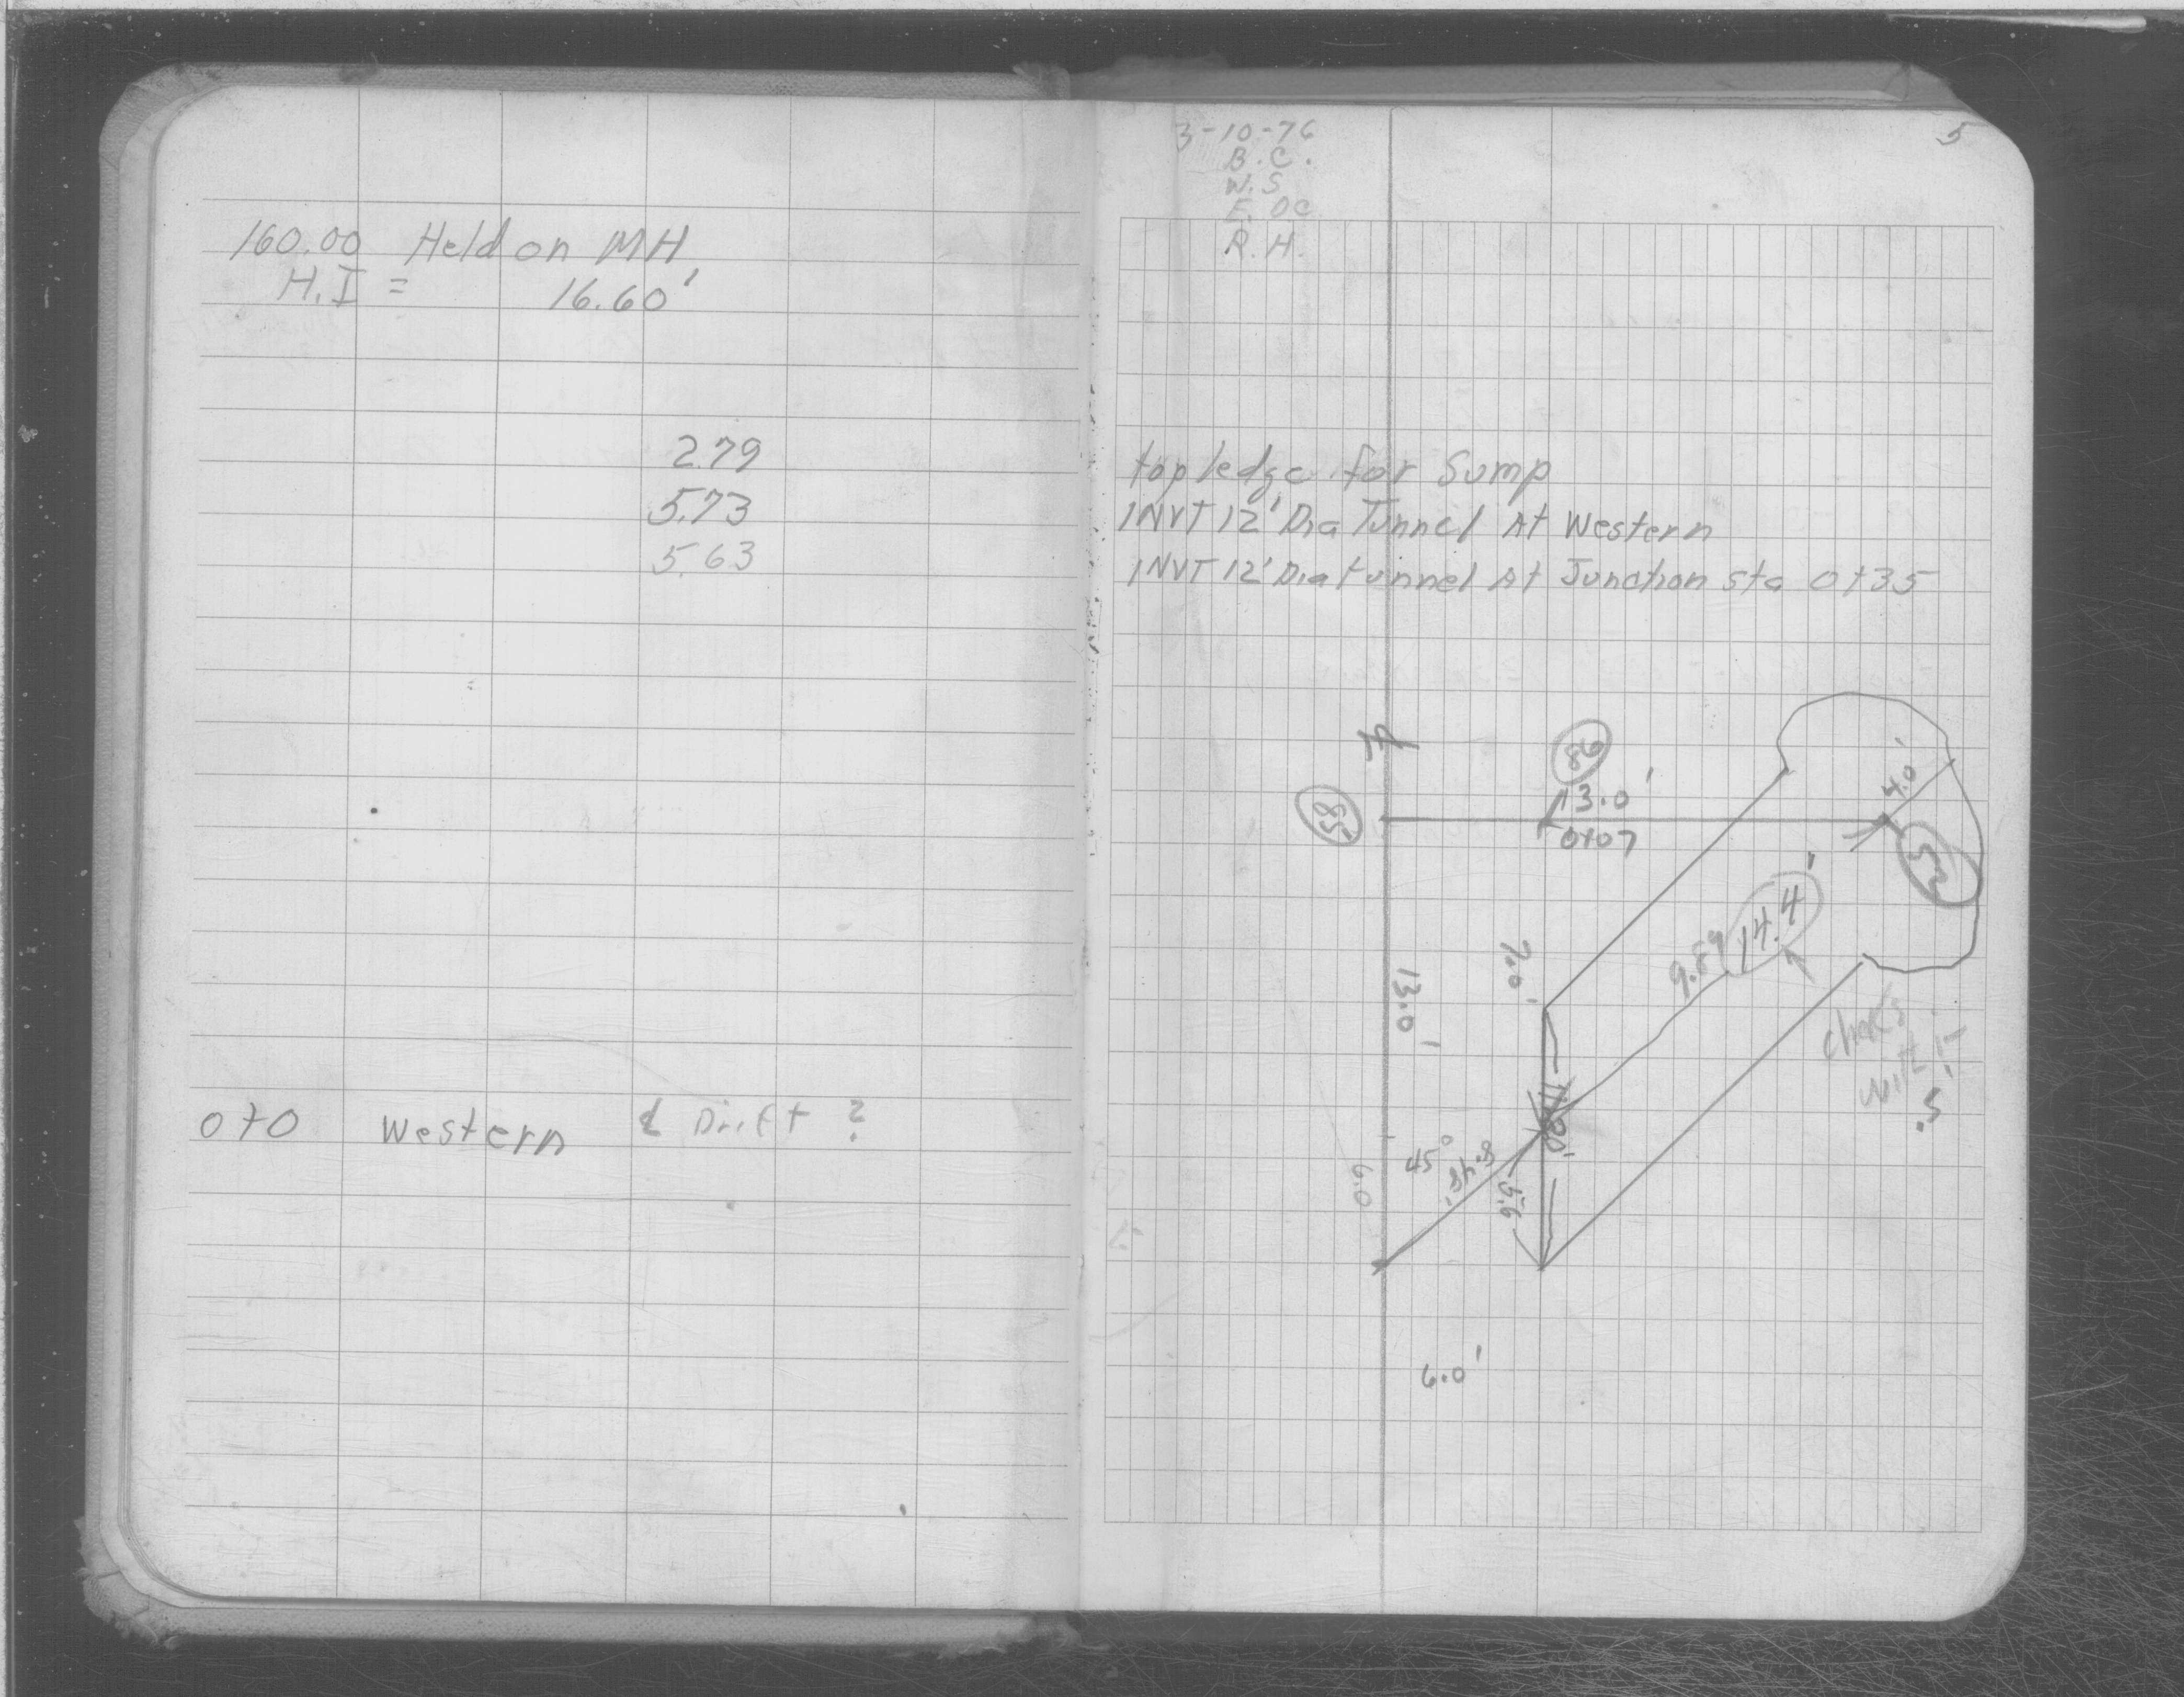 160.00 Held on MH
H.I = 16.60'
2.79
5.73
5.63
0+0 Western ₵ Drift ?
3-10-76
5
B.C.
W.S
F. OC
R.H.
top ledge for Sump
INVT 12' Dia Tunnel At Western
INVT 12' Dia tunnel At Junction sta 0+35
86
13.0'
0+07
85
4.0'
14.4'
9.89
7.0'
13.0'
check
with
.5'
45°
8.48'
5.6
6.0
6.0'